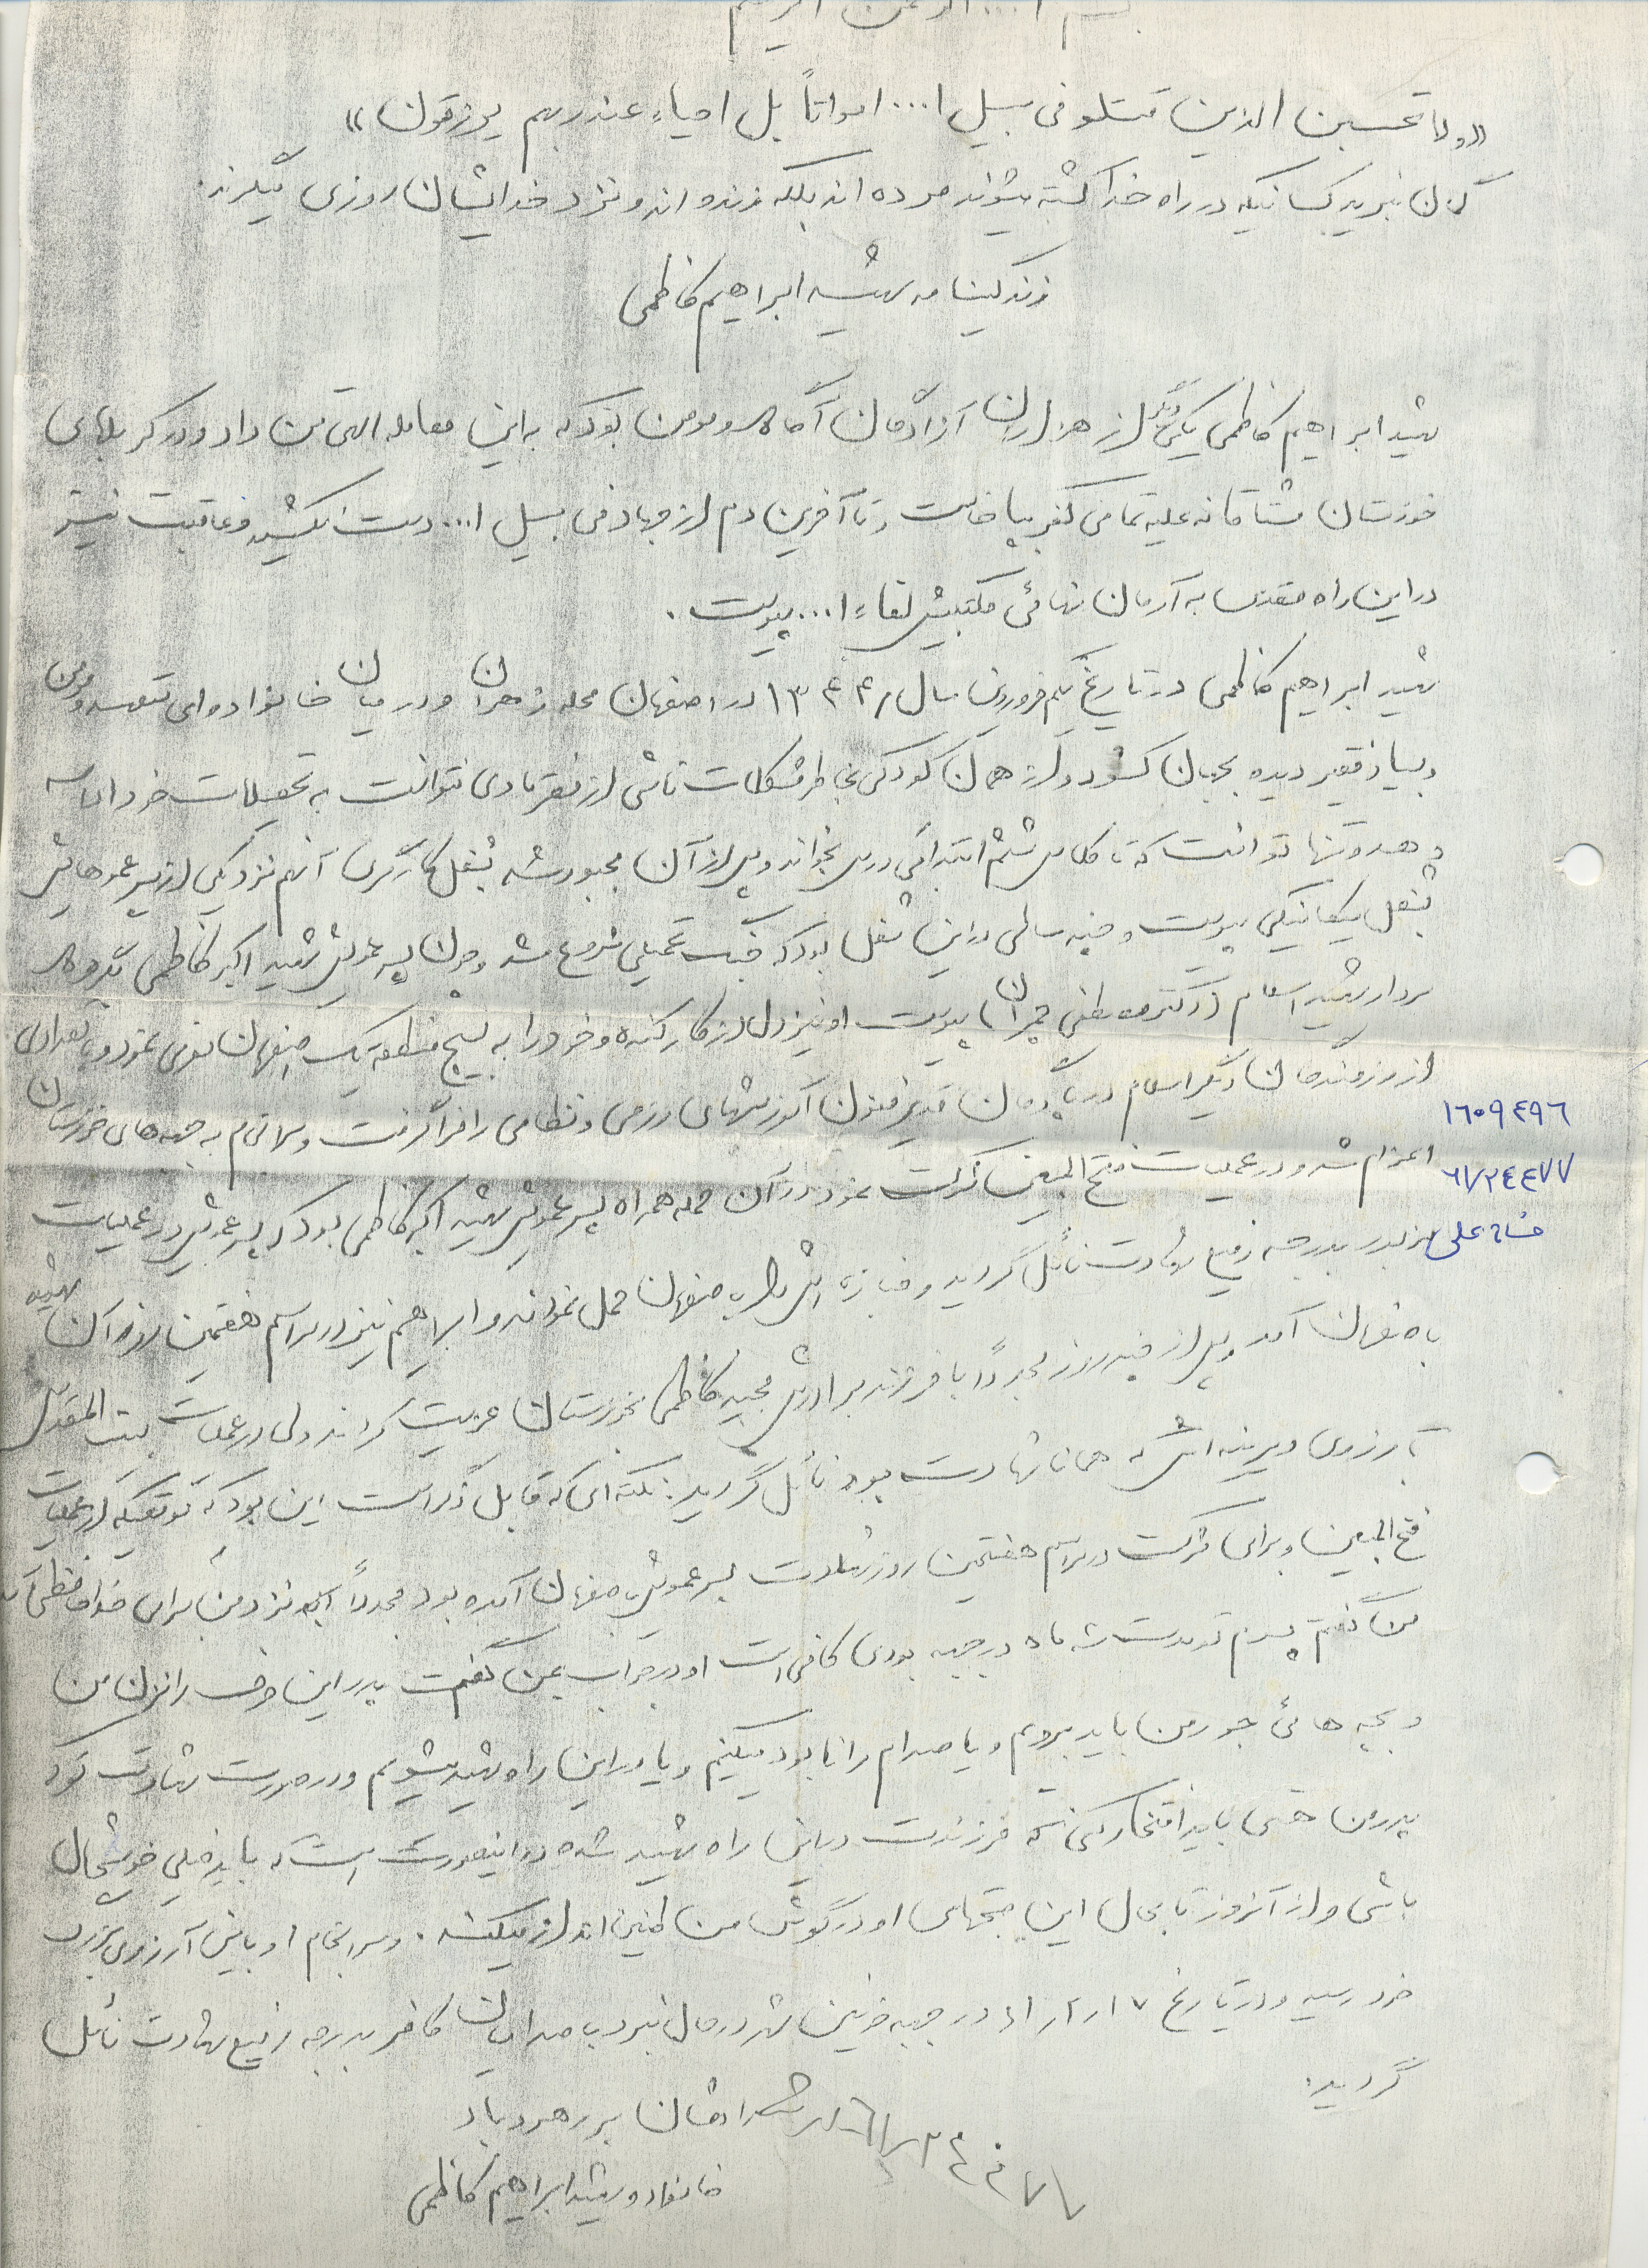 بسم ا... الرحمن الرحیم
«ولا تحسبن الذین قتلو فی سبیل ا... امواتاً بل احیاء عند ربهم یرزقون»
گمان نبرید کسانیکه در راه خدا کشته میشوند مرده اند بلکه زنده اند و نزد خدایشان روزی میگیرند.
زندگینامه شهید ابراهیم کاظمی
شهید ابراهیم کاظمی یکی دیگر از هزاران آزادگان آگاه و مومن بود که به این معامله الهی تن داد و در کربلای
خوزستان مشتاقانه علیه تمامی کفر بپا خاست و تا آخرین دم از جهاد فی سبیل ا... دست نکشید و عاقبت نیز
در این راه مقدس به آرمان نهائی مکتبیش لقاء ا... پیوست.
شهید ابراهیم کاظمی در تاریخ یکم فروردین سال ۱۳۴۴ در اصفهان محله زهران و در میان خانواده ای متعهد و مومن
و بسیار فقیر دیده بجهان گشود و از همان کودکی بخاطر مشکلات ناشی از فقر مادی نتوانست به تحصیلات خود ادامه
دهد و تنها توانست که تا کلاس ششم ابتدائی درس بخواند و پس از آن مجبور شد بشغل کارگری آنهم نزد یکی از پسر عموهایش
بشغل مکانیکی پیوست و چند سالی در این شغل بود که جنگ تحمیلی شروع شد و چون پسر عمویش شهید اکبر کاظمی بگروه
سردار شهید اسلام (دکتر مصطفی چمران) پیوست او نیز دل از کار کنده و خود را به بسیج منطقه یک اصفهان معرفی نمود و با تعدادی
از رزمندگان دیگر اسلام در پادگان غدیر فنون آموزشهای رزمی و نظامی را فرا گرفت و سرانجام به جبهه های خوزستان
۱٦۰۹٤۹٦
اعزام شد و در عملیات فتح المبین شرکت نمود و در آن حمله همراه پسر عمویش شهید اکبر کاظمی بود که پسر عمویش در عملیات
٦۱/۲٤٤۷۷
مزبور بدرجه رفیع شهادت نائل گردید و جنازه اش را به اصفهان حمل نمودند و ابراهیم نیز در مراسم هفتمین روز آن شهید
باصفهان آمد و پس از چند روز مجدداً با فرزند برادرش مجید کاظمی بخوزستان عزیمت کردند ولی در عملیات بیت المقدس
به آرزوی دیرینه اش که همانا شهادت بود نائل گردید: نکته ای که قابل ذکر است این بود که موقعیکه از عملیات
فتح المبین و برای شرکت در مراسم هفتمین روز شهادت پسر عمویش باصفهان آمده بود مجدداً که نزد من برای خداحافظی آمد
من گفتم پسرم تو مدت سه ماه در جبهه بودی کافی است او در جواب بمن گفت پدر این حرف را نزن من
و بچه هائی جور من باید برویم و یا صدام را نابود میکنیم و یا در این راه شهید میشویم و در صورت شهادت تو که
پدر من هستی باید افتخار کنی که فرزندت در این راه شهید شده در اینصورت است که باید خیلی خوشحال
باشی و از آنروز تا بحال این صحبتهای او در گوش من طنین انداز میکند. و سرانجام او باین آرزوی بزرگ
خود رسید و در تاریخ ۱۷ر۲ر۶۱ در جبهه خونین شهر در حال نبرد با صدامیان کافر بدرجه رفیع شهادت نائل
گردید.
راهشان پر رهرو باد
خانواده شهید ابراهیم کاظمی